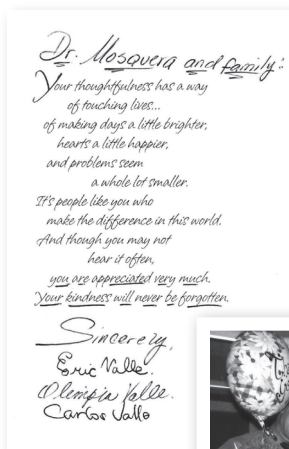 Dr. Mosquera and family:
Your thoughtfulness has a way
of touching lives...
of making days a little brighter,
hearts a little happier,
and problems seem
a whole lot smaller.
It's people like you who
make the difference in this world.
And though you may not
hear it often,
you are appreciated very much.
Your kindness will never be forgotten.
Sincerely,
Eric Valle.
Olimpia Valle.
Carlos Valle